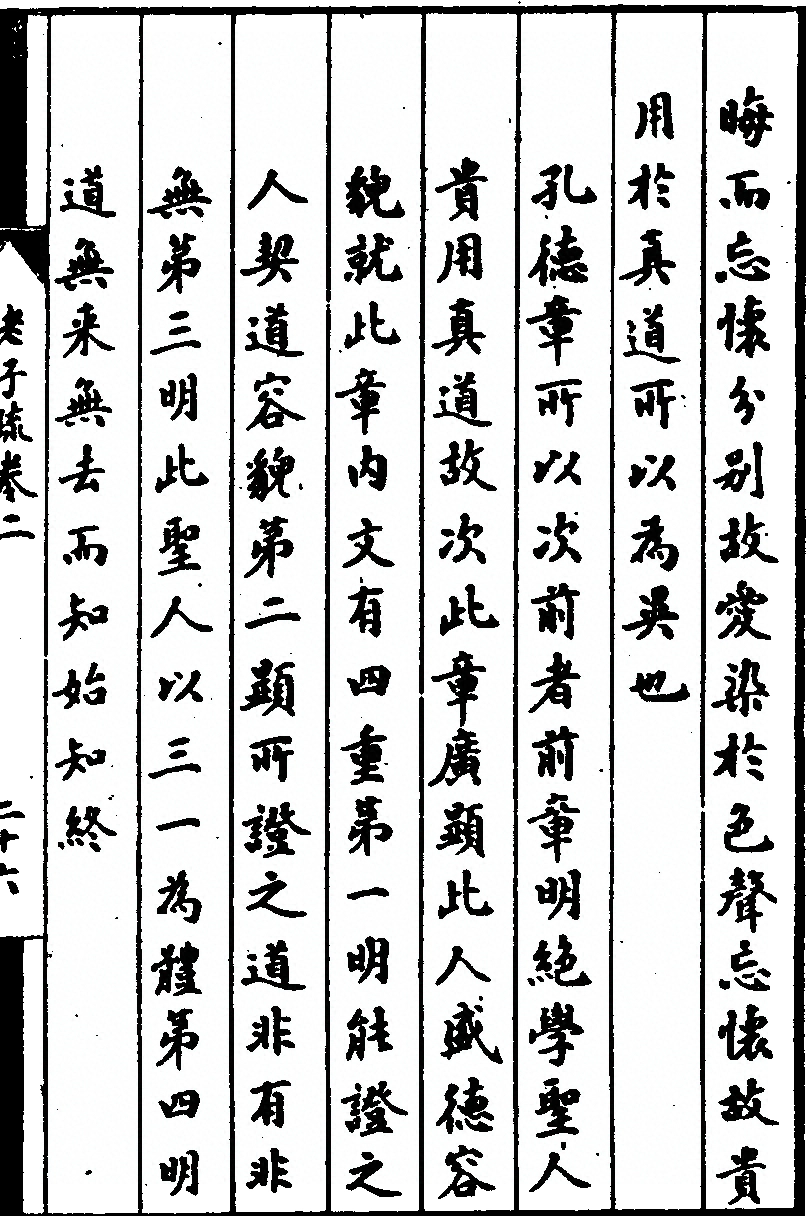 晦而忘懷分別故愛染於色聲忘懷故貴
用於真道所以為異也
孔德章所以次前者前章明絕學聖人
貴用真道故次此章廣顯此人盛德容
貌就此章內文有四重第一明能證之
人契道容貌第二顯所證之道非有非
無第三明此聖人以三一為體第四明
道無来無去而知始知終
老子疏卷二
二十六